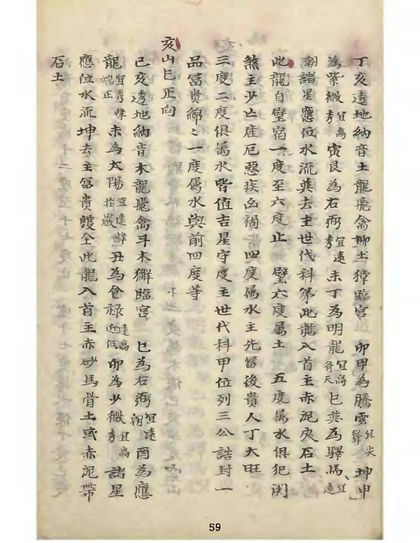 丁亥透地納音土龍飛禽柳土獐臨宮 卯甲為騰雲宜尖 坤申
為紫微宜高 寅艮為石弼宜遠 未丁為明龍宜高 巳巽為驛馬宜遠
朝諸星應位水流巽去主世代科第此龍入首主赤泥夾石土
此龍自壁宿一度至六度止 壁六度屬土 五度屬水俱犯関
煞主少亡瘧厄惡疾凶禍 四度屬水主先富後貴人丁大旺
三度二度俱屬水皆值吉星守度主世代科甲位列三公誥封一
品富貴綿綿一度屬水與前四度等
亥山巳正向
己亥透地納音木龍飛禽斗木獬臨宮 巳為石弼宜遠 酉為應
龍宜秀 未為太陽宜遠 丑為食祿宜低 卯為少微宜高 諸星
應位水流坤去主富貴雙全此龍入首主赤砂馬骨土或赤泥帶
石土
59